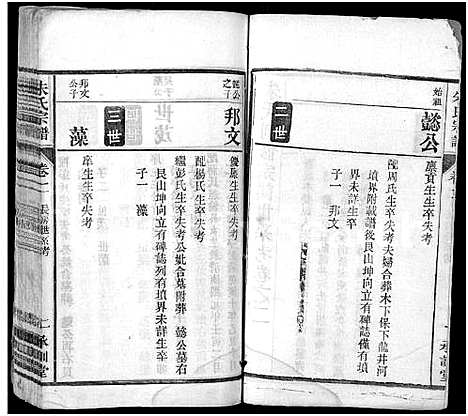 始祖
懿公
廪貢生生卒失考
配周氏生卒失考夫婦合葬木下保下龍井河
墳界附載譜後艮山坤向立有碑誌僅有墳
界未詳生卒
子一 邦文
二世
懿公
之子
邦文
優廩生生卒失考
配楊氏生卒失考
繼彭氏生卒失考公妣合墓附葬 懿公墓右
艮山坤向立有碑誌列有墳界未詳生卒
子一 藻
三世
邦文
公子
藻
庠生生卒失考
朱氏宗譜
卷一
承訓堂